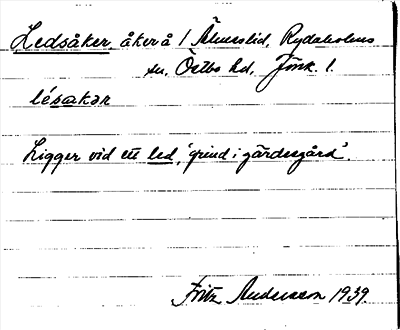 Ledsåker, åker å 1 Älmeslid, Rydaholms
sn. Östbo hd. Jönk. l.
lésakər
Ligger vid ett led, 'grind i gärdesgård'.
Fritz Andersson 1939.